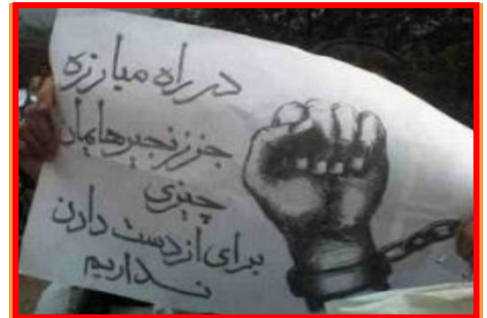 در راه مبارزه
جز زنجیرهایمان
چیزی
برای از دست دادن
نداریم